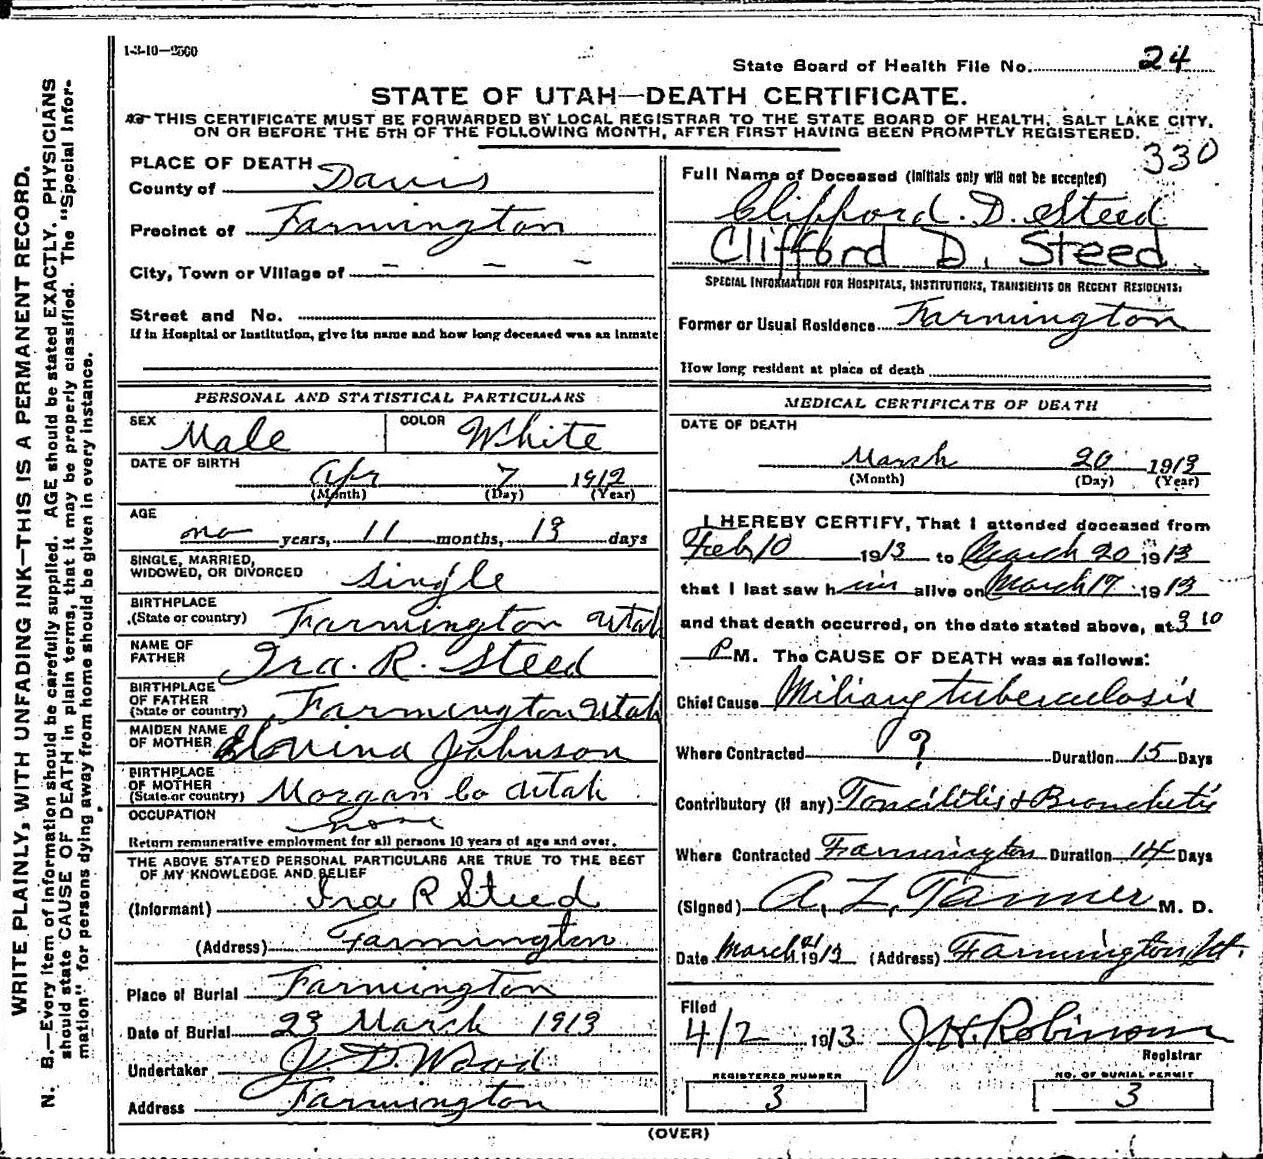 1-3-10—2500
State Board of Health File No. 24
STATE OF UTAH—DEATH CERTIFICATE.
THIS CERTIFICATE MUST BE FORWARDED BY LOCAL REGISTRAR TO THE STATE BOARD OF HEALTH, SALT LAKE CITY,
ON OR BEFORE THE 5TH OF THE FOLLOWING MONTH, AFTER FIRST HAVING BEEN PROMPTLY REGISTERED.
330
WRITE PLAINLY, WITH UNFADING INK—THIS IS A PERMANENT RECORD.
N. B.—Every item of information should be carefully supplied. AGE should be stated EXACTLY. PHYSICIANS
should state CAUSE OF DEATH in plain terms, that it may be properly classified. The "Special Infor-
mation" for persons dying away from home should be given in every instance.
PLACE OF DEATH
County of Davis
Precinct of Farmington
City, Town or Village of — — —
Street and No.
If in Hospital or Institution, give its name and how long deceased was an inmate
PERSONAL AND STATISTICAL PARTICULARS
SEX Male COLOR White
DATE OF BIRTH
Apr 7 1912
(Month) (Day) (Year)
AGE
no years, 11 months, 13 days
SINGLE, MARRIED,
WIDOWED, OR DIVORCED Single
BIRTHPLACE
(State or country) Farmington Utah
NAME OF
FATHER Ira. R. Steed
BIRTHPLACE
OF FATHER
(State or country) Farmington Utah
MAIDEN NAME
OF MOTHER Johnson
BIRTHPLACE
OF MOTHER
(State or country) Morgan Co Utah
OCCUPATION none
Return remunerative employment for all persons 10 years of age and over.
THE ABOVE STATED PERSONAL PARTICULARS ARE TRUE TO THE BEST
OF MY KNOWLEDGE AND BELIEF
(Informant) Ira R Steed
(Address) Farmington
Place of Burial Farmington
Date of Burial 23 March 1913
Undertaker J. D. Wood
Address Farmington
Full Name of Deceased (Initials only will not be accepted)
Clifford. D. Steed
Clifford D. Steed
SPECIAL INFORMATION FOR HOSPITALS, INSTITUTIONS, TRANSIENTS OR RECENT RESIDENTS:
Former or Usual Residence Farmington
How long resident at place of death
MEDICAL CERTIFICATE OF DEATH
DATE OF DEATH
March 20 1913
(Month) (Day) (Year)
I HEREBY CERTIFY, That I attended deceased from
Feb 10 1913 to March 20 1913
that I last saw him alive on March 17 1913
and that death occurred, on the date stated above, at 9 10
P M. The CAUSE OF DEATH was as follows:
Chief Cause Miliary tuberculosis
Where Contracted ? Duration 15 Days
Contributory (if any) Toncilitis & Bronchitis
Where Contracted Farmington Duration 14 Days
(Signed) A. Z. Tanner M. D.
Date March 21 1913 (Address) Farmington Ut.
Filed
4/2 1913 J. H. Robinson
Registrar
REGISTERED NUMBER
3
NO. OF BURIAL PERMIT
3
(OVER)